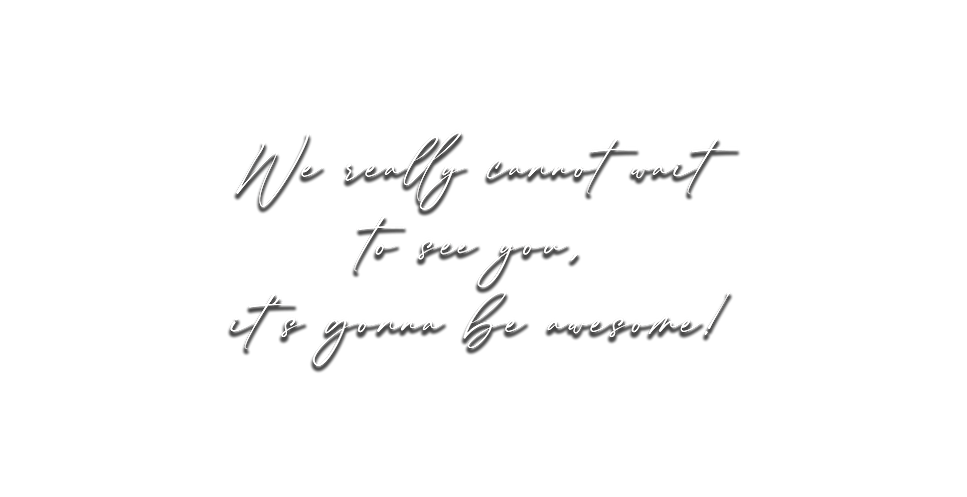 We really cannot wait
to see you,
it's gonna be awesome!